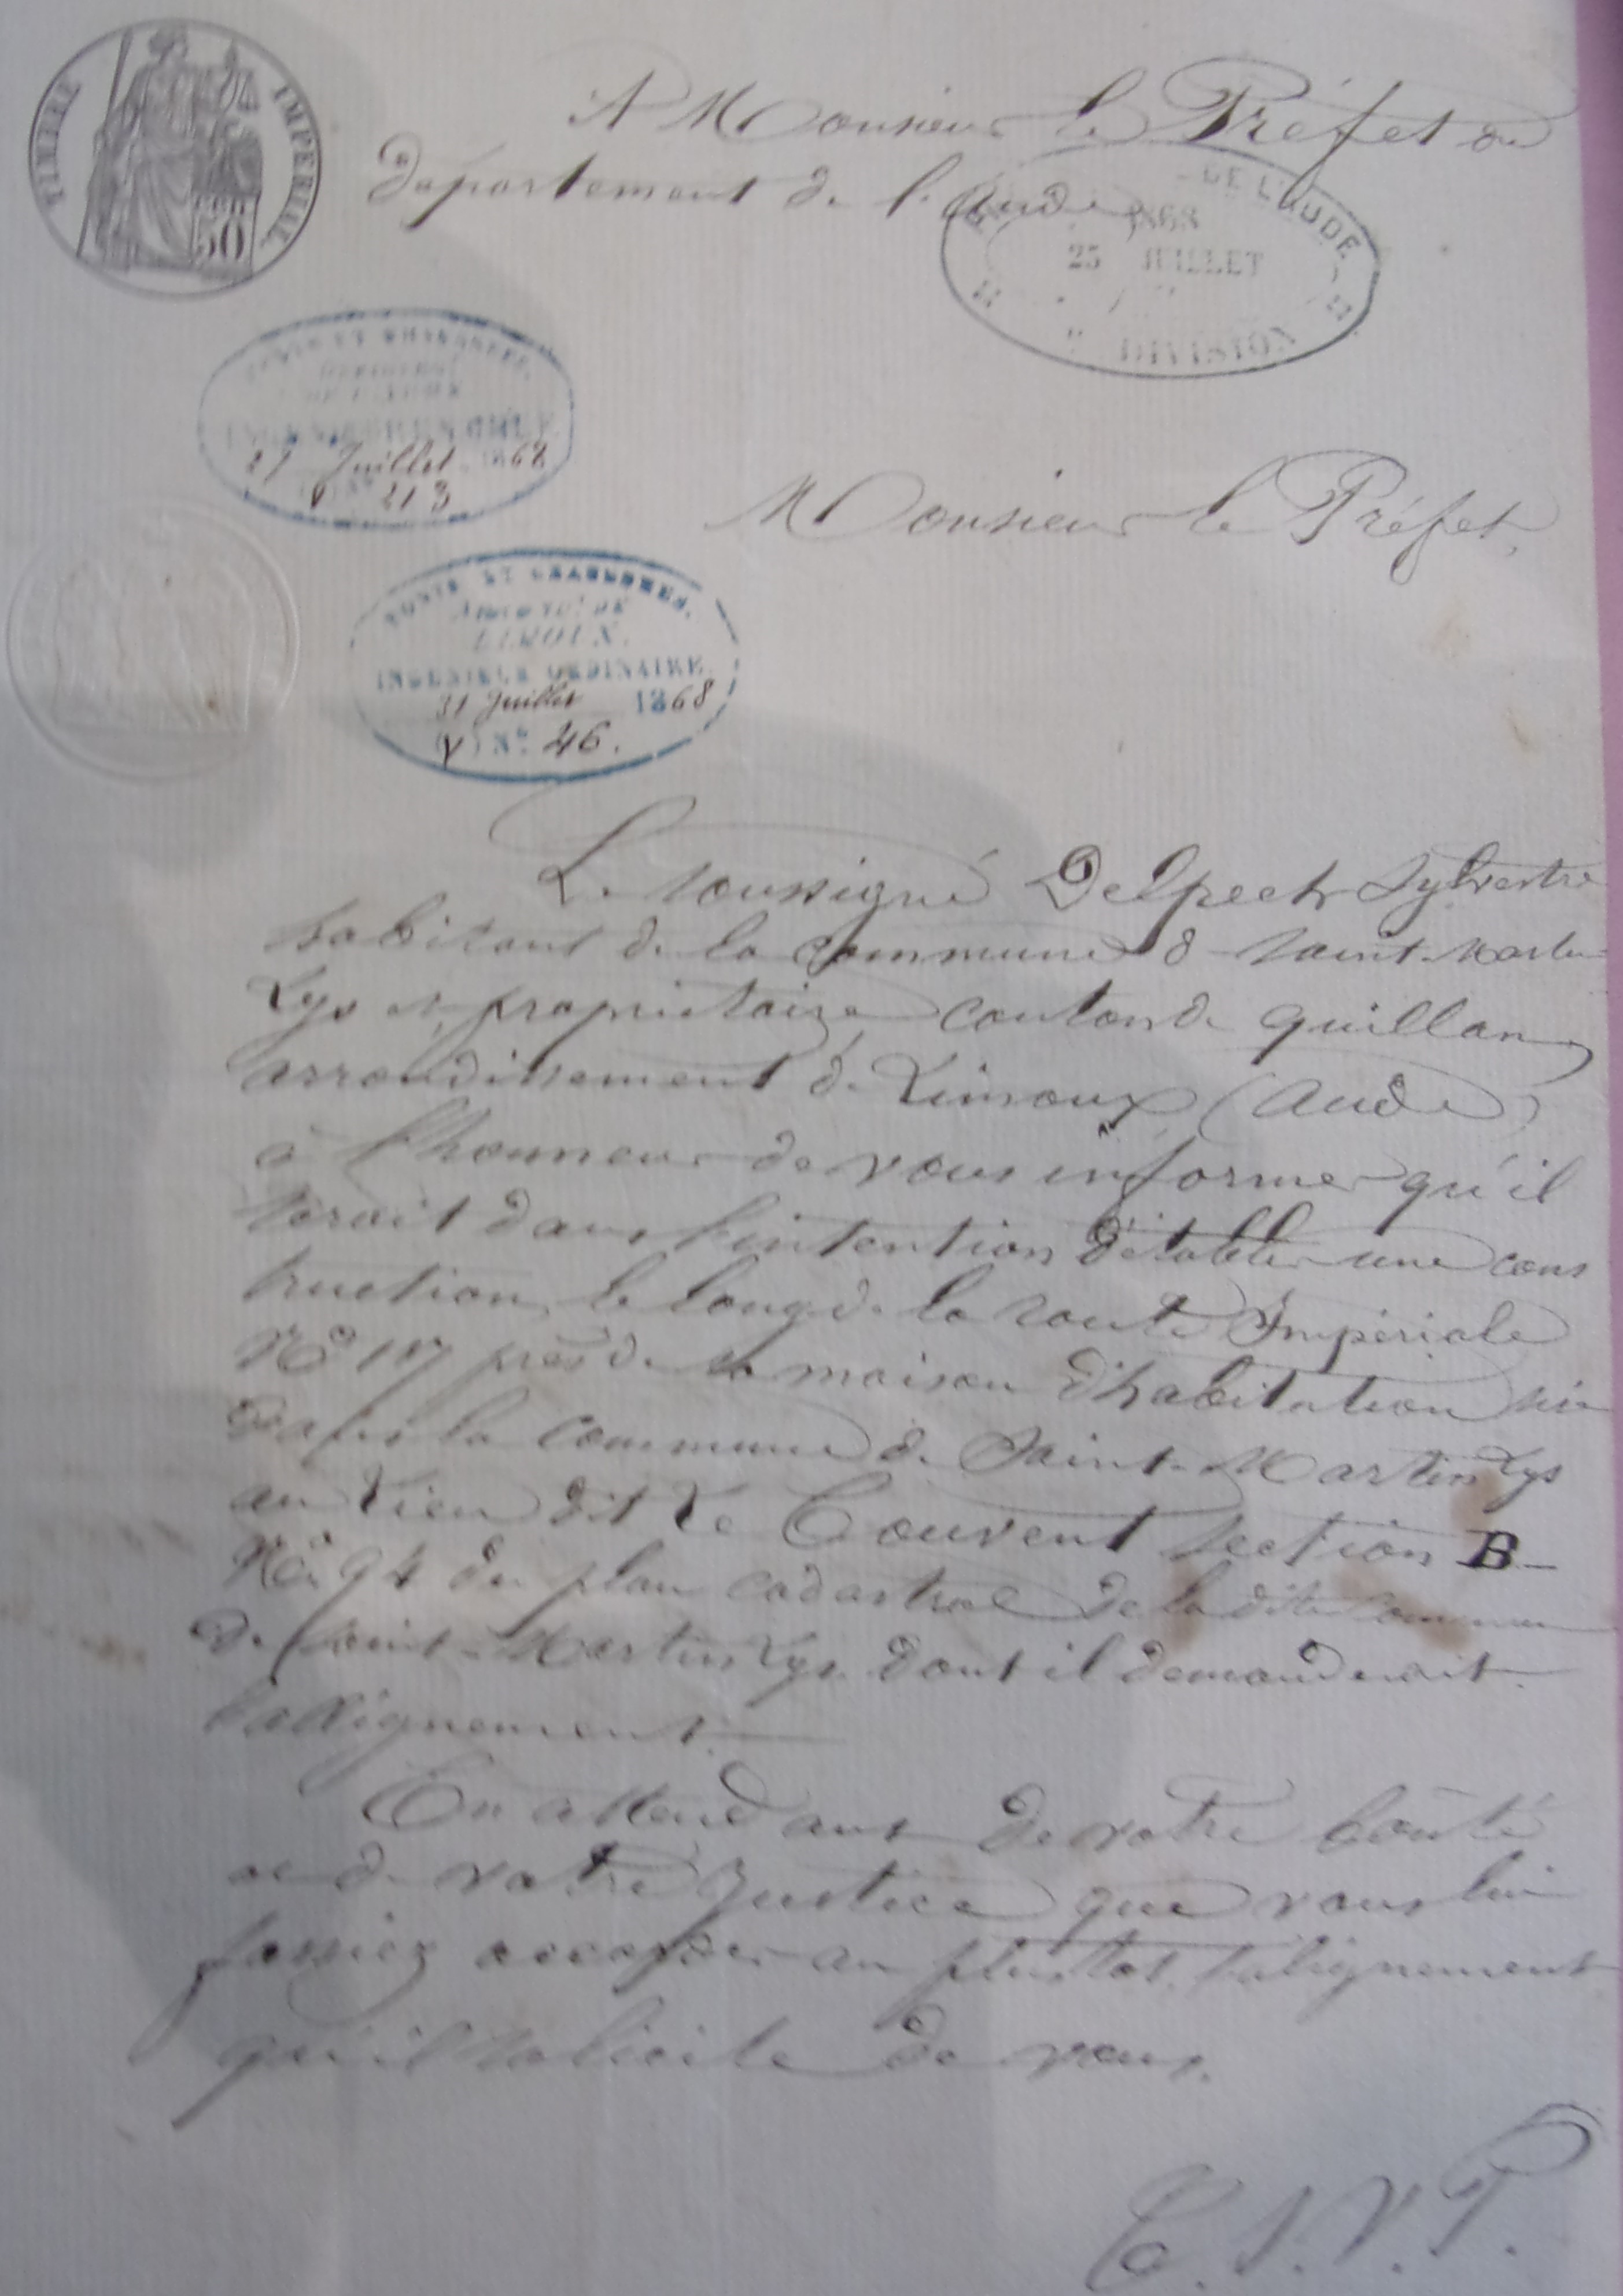 TIMBRE IMPERIAL
50
A Monsieur le Préfet du
département de l'Aude
DE L'AUDE
1868
25 JUILLET
DIVISION
PONTS ET CHAUSSÉES.
DE L'AUDE
INGÉNIEUR EN CHEF
27 Juillet 1868
213
Monsieur le Préfet,
PONTS ET CHAUSSÉES.
ARROND.T DE
LIMOUX.
INGÉNIEUR ORDINAIRE
31 Juillet 1868
(V) N° 46.
Le soussigné Delpech Sylvestre
habitant de la commune de Saint-Martin
Lys et propriétaire canton de Quillan
arrondissement de Limoux (Aude)
à l'honneur de vous informer qu'il
serait dans l'intention d'établir une cons
truction le long de la route Impériale
N° 117 près de sa maison d'habitation sise
dans la commune de Saint-Martin Lys
au Lieu dit Le Couvent section B
N° 94 du plan cadastral de la dite commune
de Saint-Martin Lys dont il demanderait
l'allignement.
En attendant de votre bonté
et de votre Justice que vous lui
fassiez accorder au plustot l'alignement
qu'il solicite de vous.
T.S.V.P.